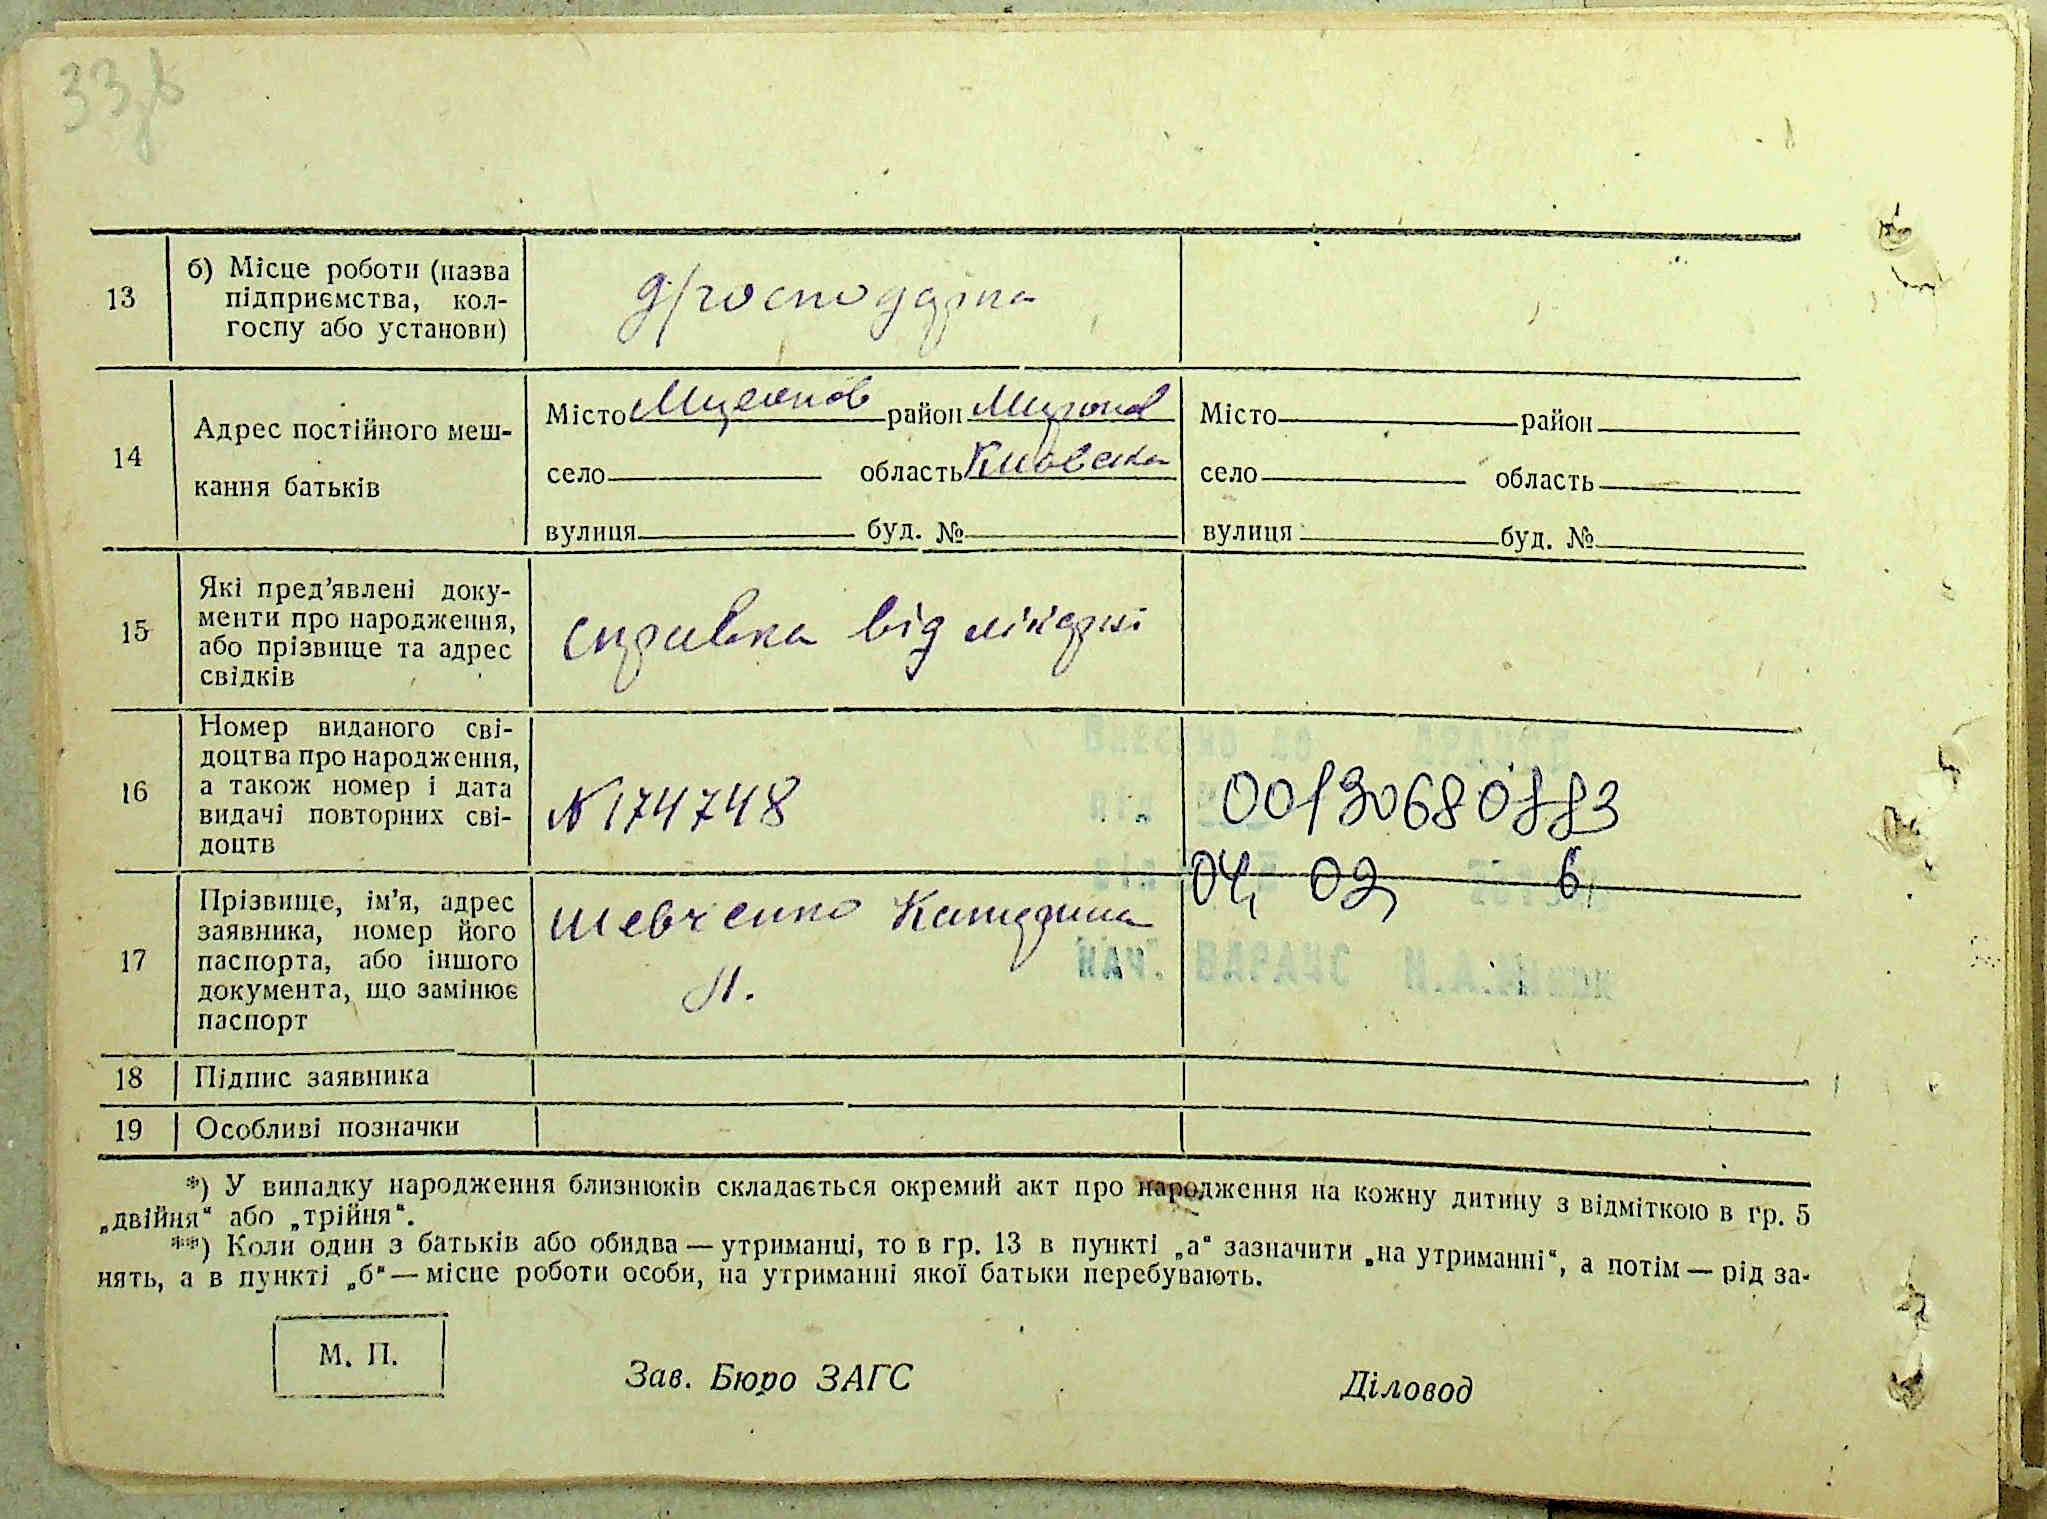 33
13
б) Місце роботи (назва
підприємства, кол-
госпу або установи)
д/господарка
14
Адрес постійного меш-
кання батьків
Місто район Мирон
село область Киевска
вулиця буд. №
Місто район
село область
вулиця буд. №
15
Які пред'явлені доку-
менти про народження,
або прізвище та адрес
свідків
справка від лікарні
16
Номер виданого сві-
доцтва про народження,
а також номер і дата
видачі повторних сві-
доцтв
№174748
Внесено до ДРАЦСГ
00130680883
04, 02, 6
17
Прізвище, ім'я, адрес
заявника, номер його
паспорта, або іншого
документа, що замінює
паспорт
Шевченко Катерина
Н.
НАЧ. ВДРАЦС
18
Підпис заявника
19
Особливі позначки
*) У випадку народження близнюків складається окремий акт про народження на кожну дитину з відміткою в гр. 5
„двійня“ або „трійня“.
**) Коли один з батьків або обидва — утриманці, то в гр. 13 в пункті „а“ зазначити „на утриманні“, а потім — рід за-
нять, а в пункті „б“ — місце роботи особи, на утриманні якої батьки перебувають.
М. П.
Зав. Бюро ЗАГС
Діловод